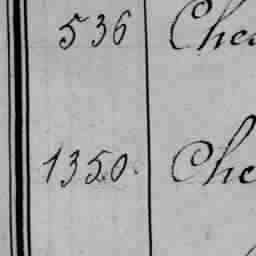 536 Chea
1350. Che